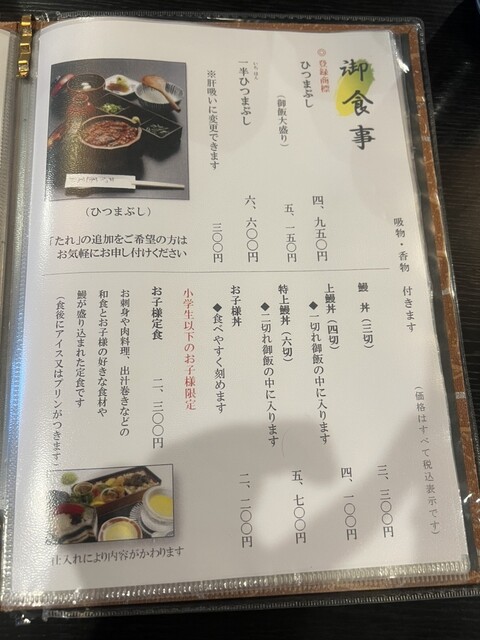 御食事
吸物・香物 付きます
(価格はすべて税込表示です)
※登録商標
ひつまぶし 四、九五〇円
(御飯大盛り) 五、一五〇円
いち はん
一半ひつまぶし 六、六〇〇円
※肝吸いに変更できます 三〇〇円
(ひつまぶし)
「たれ」の追加をご希望の方は
お気軽にお申し付けください
鰻 丼(三切) 三、三〇〇円
上鰻丼(四切) 四、一〇〇円
◆一切れ御飯の中に入ります
特上鰻丼(六切) 五、七〇〇円
◆二切れ御飯の中に入ります
お子様丼 二、二〇〇円
◆食べやすく刻めます
小学生以下のお子様限定
お子様定食 二、三〇〇円
お刺身や肉料理、出汁巻きなどの
和食とお子様の好きな食材や
鰻が盛り込まれた定食です
(食後にアイス又はプリンがつきます)
仕入れにより内容がかわります